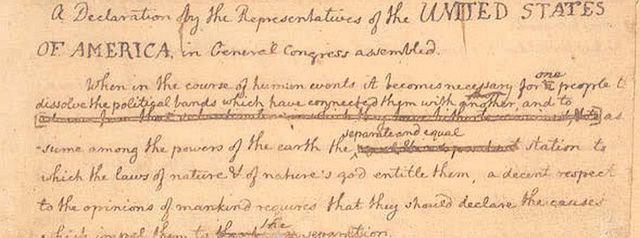 A Declaration by the Representatives of the UNITED STATES
OF AMERICA, in General Congress assembled.
When in the course of human events it becomes necessary for one people t
dissolve the political bands which have connected them with another, and to as
-sume among the powers of the earth the separate and equal station to
which the laws of nature & of nature's god entitle them, a decent respect
to the opinions of mankind requires that they should declare the causes
which impel them to the separation.